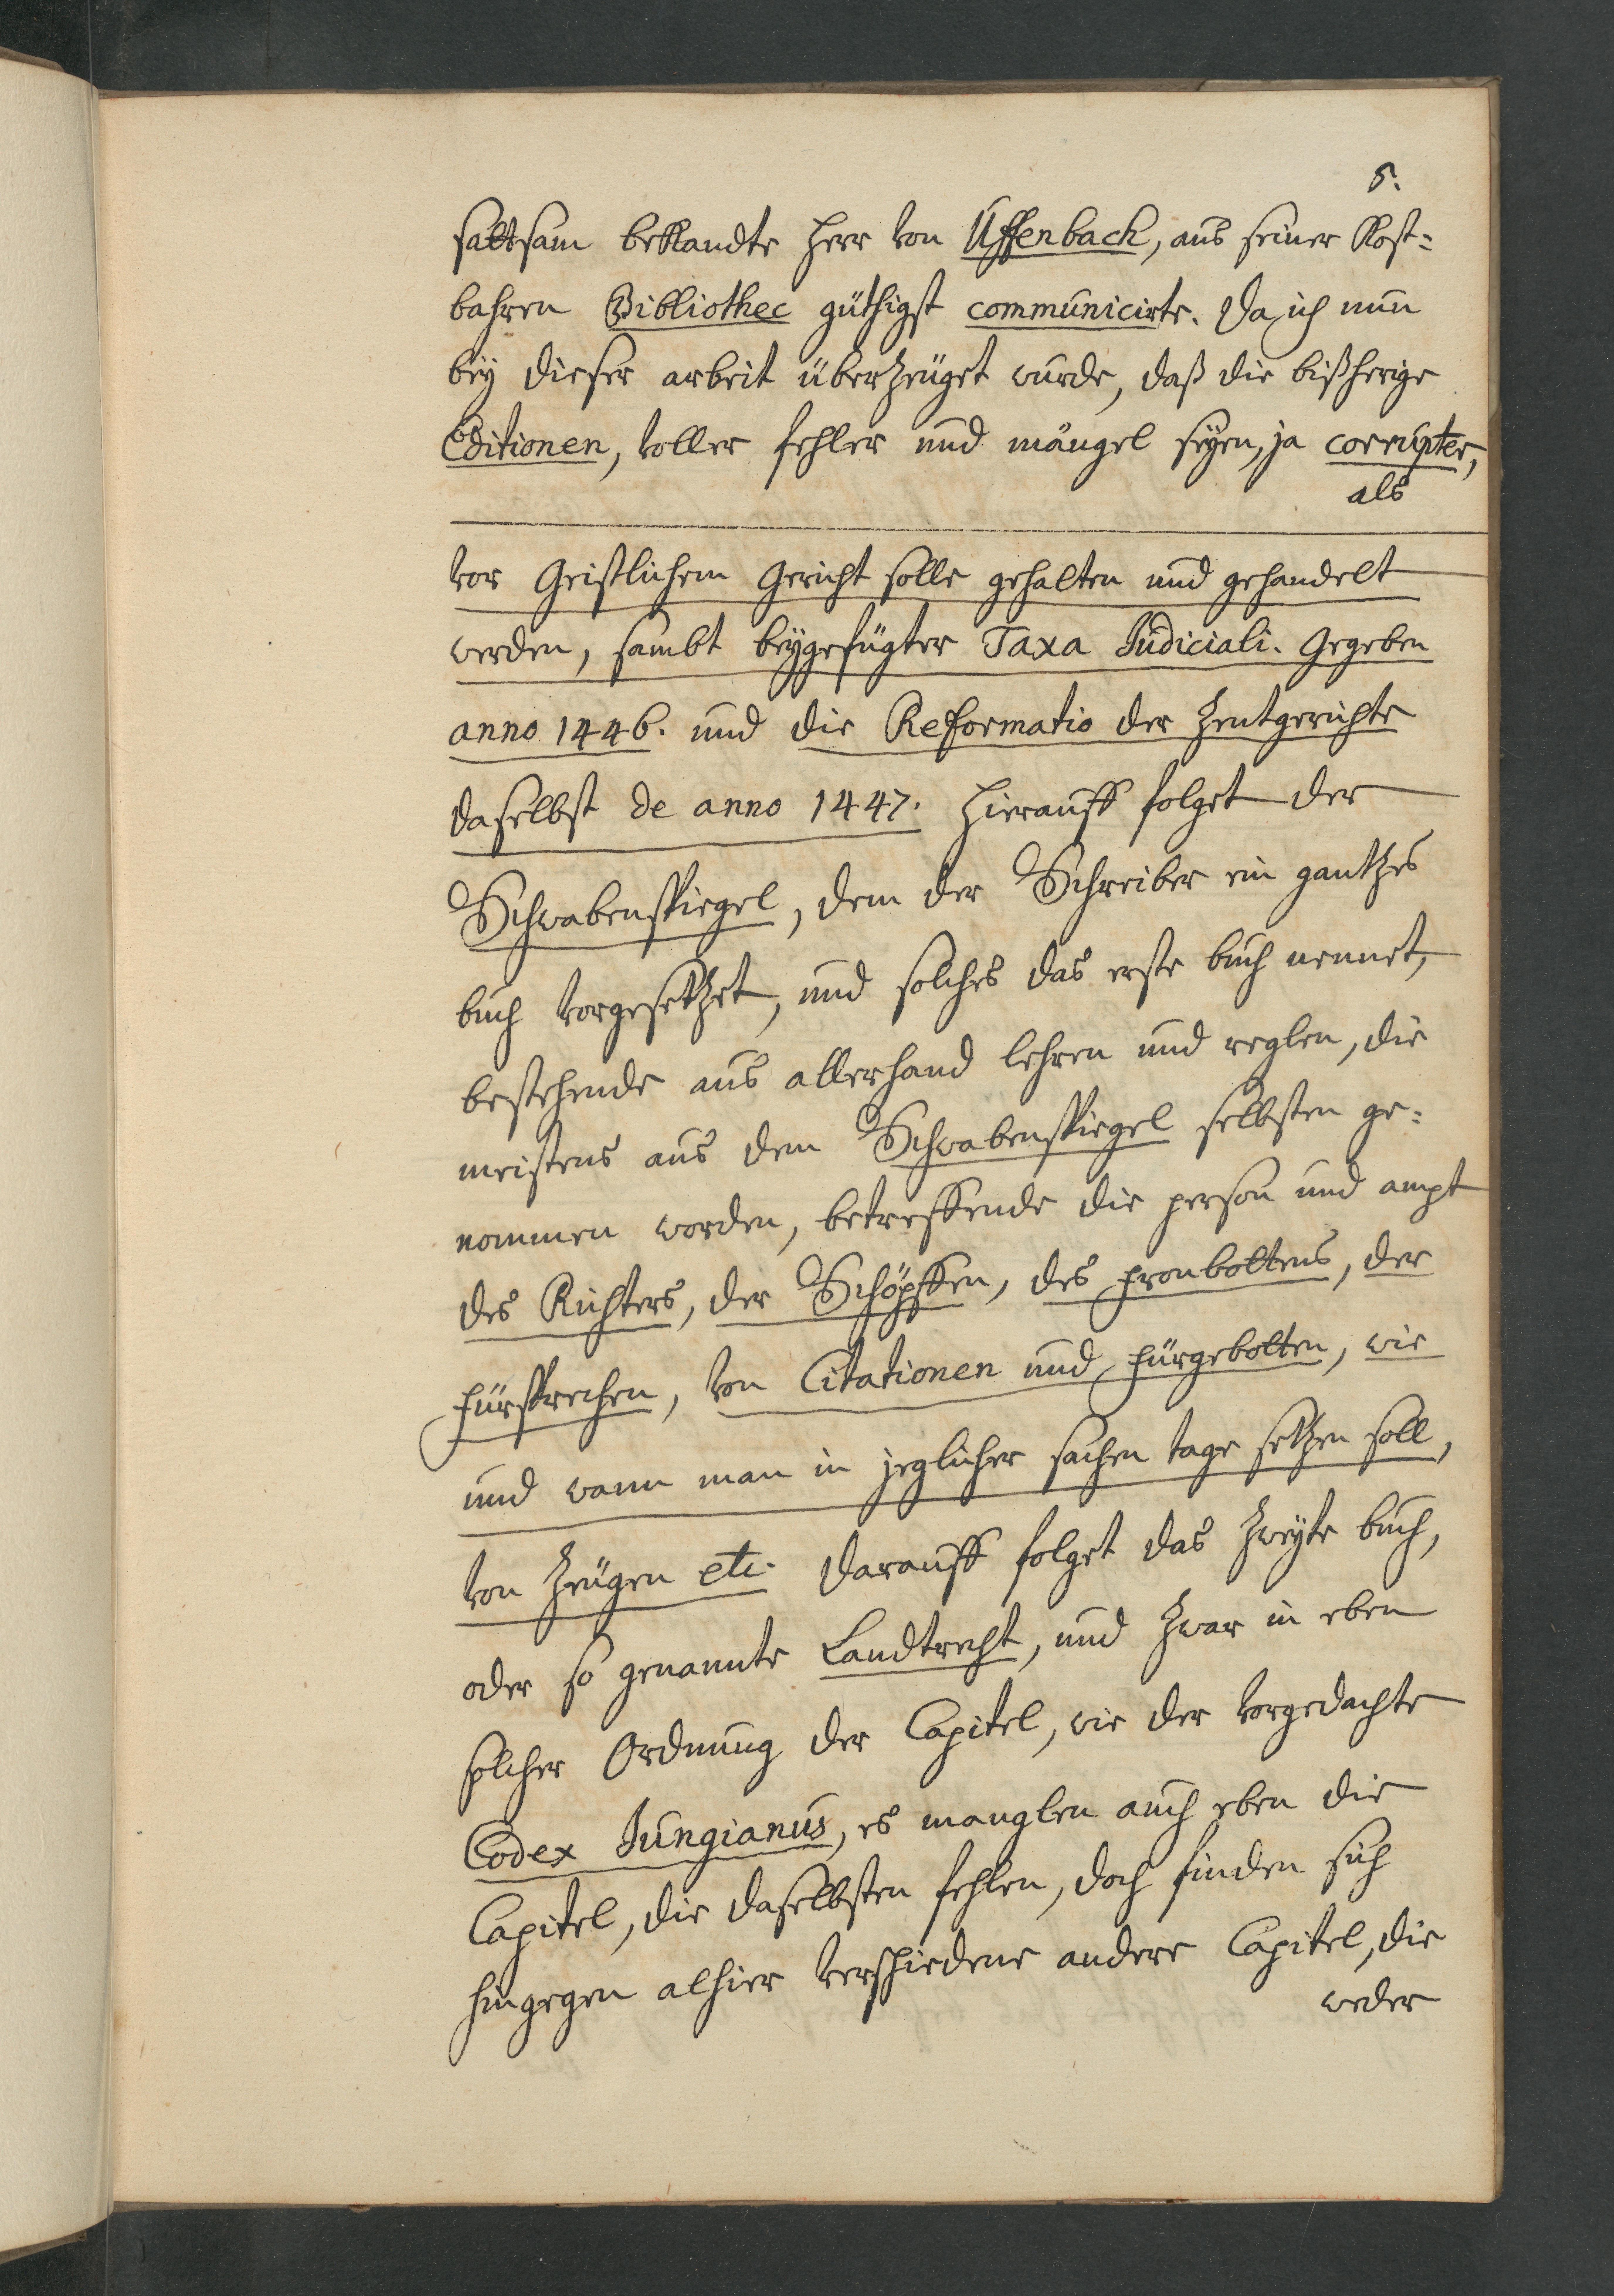 5.
sattsam bekandte Herr von Uffenbach, aus seiner Kost=
bahren Bibliothec güthigst communicirte. Da ich nun
bey dieser arbeit überzeüget wurde, daß die bißherige
Editionen, voller fehler und mängel seyen, ja corrupter,
als
vor Geistlichem Gericht solle gehalten und gehandelt
werden, sambt beygefügter Taxa Judiciali. Gegeben
anno 1446. und die Reformatio der Zentgerichte
daselbst de anno 1447. Hierauff folget der
Schwabenspiegel, dem der Schreiber ein gantzes
buch vorgesetzet, und solches das erste buch nennet,
bestehende aus allerhand lehren und reglen, die
meistens aus dem Schwabenspiegel selbsten ge=
nommen worden, betreffende die person und ampt
des Richters, der Schöpffen, des fronbottens, der
fürsprechen, von Citationen und fürgebotten, wie
und wann man in jeglicher sachen tage setzen soll,
von Zeügen etc. Darauff folget das Zweyte buch,
oder so genannte Landtrecht, und zwar in eben
solcher Ordnung der Capitel, wie der vorgedachte
Codex Jungianus, es manglen auch eben die
Capitel, die daselbsten fehlen, doch finden sich
hingegen alhier verschiedene andere Capitel, die
weder